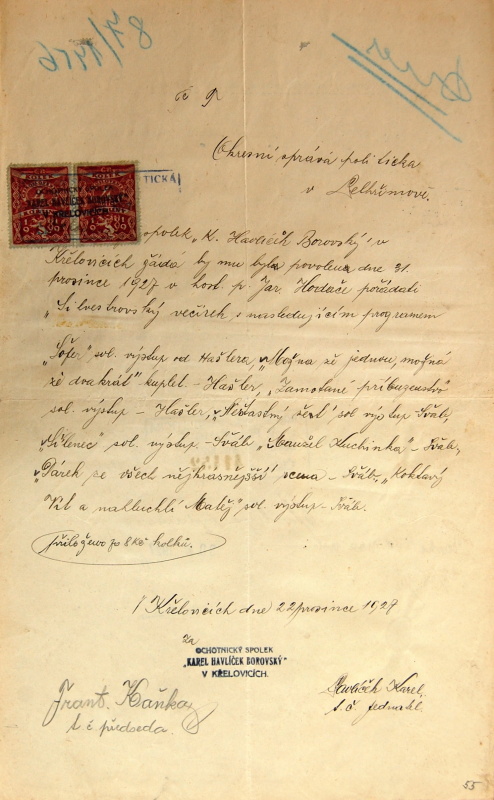 87/1426
č 9
Okresní správa politická
v Pelhřimově.
TICKÁ
OCHOTNICKÝ SPOLEK
"KAREL HAVLÍČEK BOROVSKÝ"
V KŘELOVICÍCH.
spolek „K. Havlíček Borovský" v
Křelovicích žádá by mu byla povolena dne 31.
prosince 1927 v host. p. Jar. Hodače pořádati
„Silvestrovský večírek s nasledujícím programem
sol. výstup od Hašlera, „Možna že jednou, možná
že dva krát" kuplet - Hašler, „Zamotané příbuzenstvo"
sol. výstup - Hašler, „Nešťastný šest" sol výstup Šváb,
„Šílenec" sol. výstup - Šváb „Manžel Luchinka" - Šváb,
„Párek ze všech nejkrásnější" scena - Šváb, „Koktavý
Vít a nahluchlí Matěj" sol. výstup - Šváb.
přiloženo za 8 Kč kolků.
V Křelovicích dne 22 prosince 1927
Za
OCHOTNICKÝ SPOLEK
„KAREL HAVLÍČEK BOROVSKÝ"
V KŘELOVICÍCH.
Frant. Kaňka
t. č předseda.
Havlíček Karel,
t. č. jednatel.
55